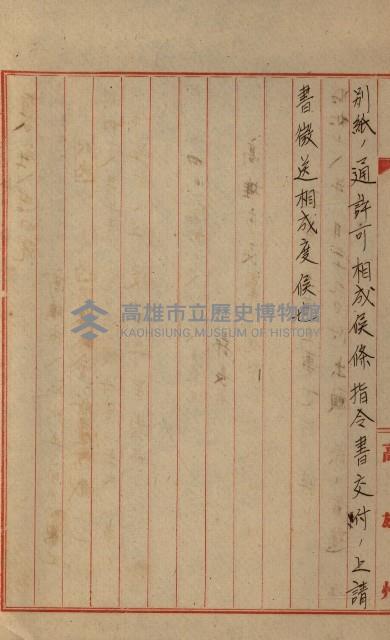 別紙ノ通許可相成候條指令書交附ノ上請
書徴送相成度候也
高雄州
高雄市立歷史博物館
KAOHSIUNG MUSEUM OF HISTORY